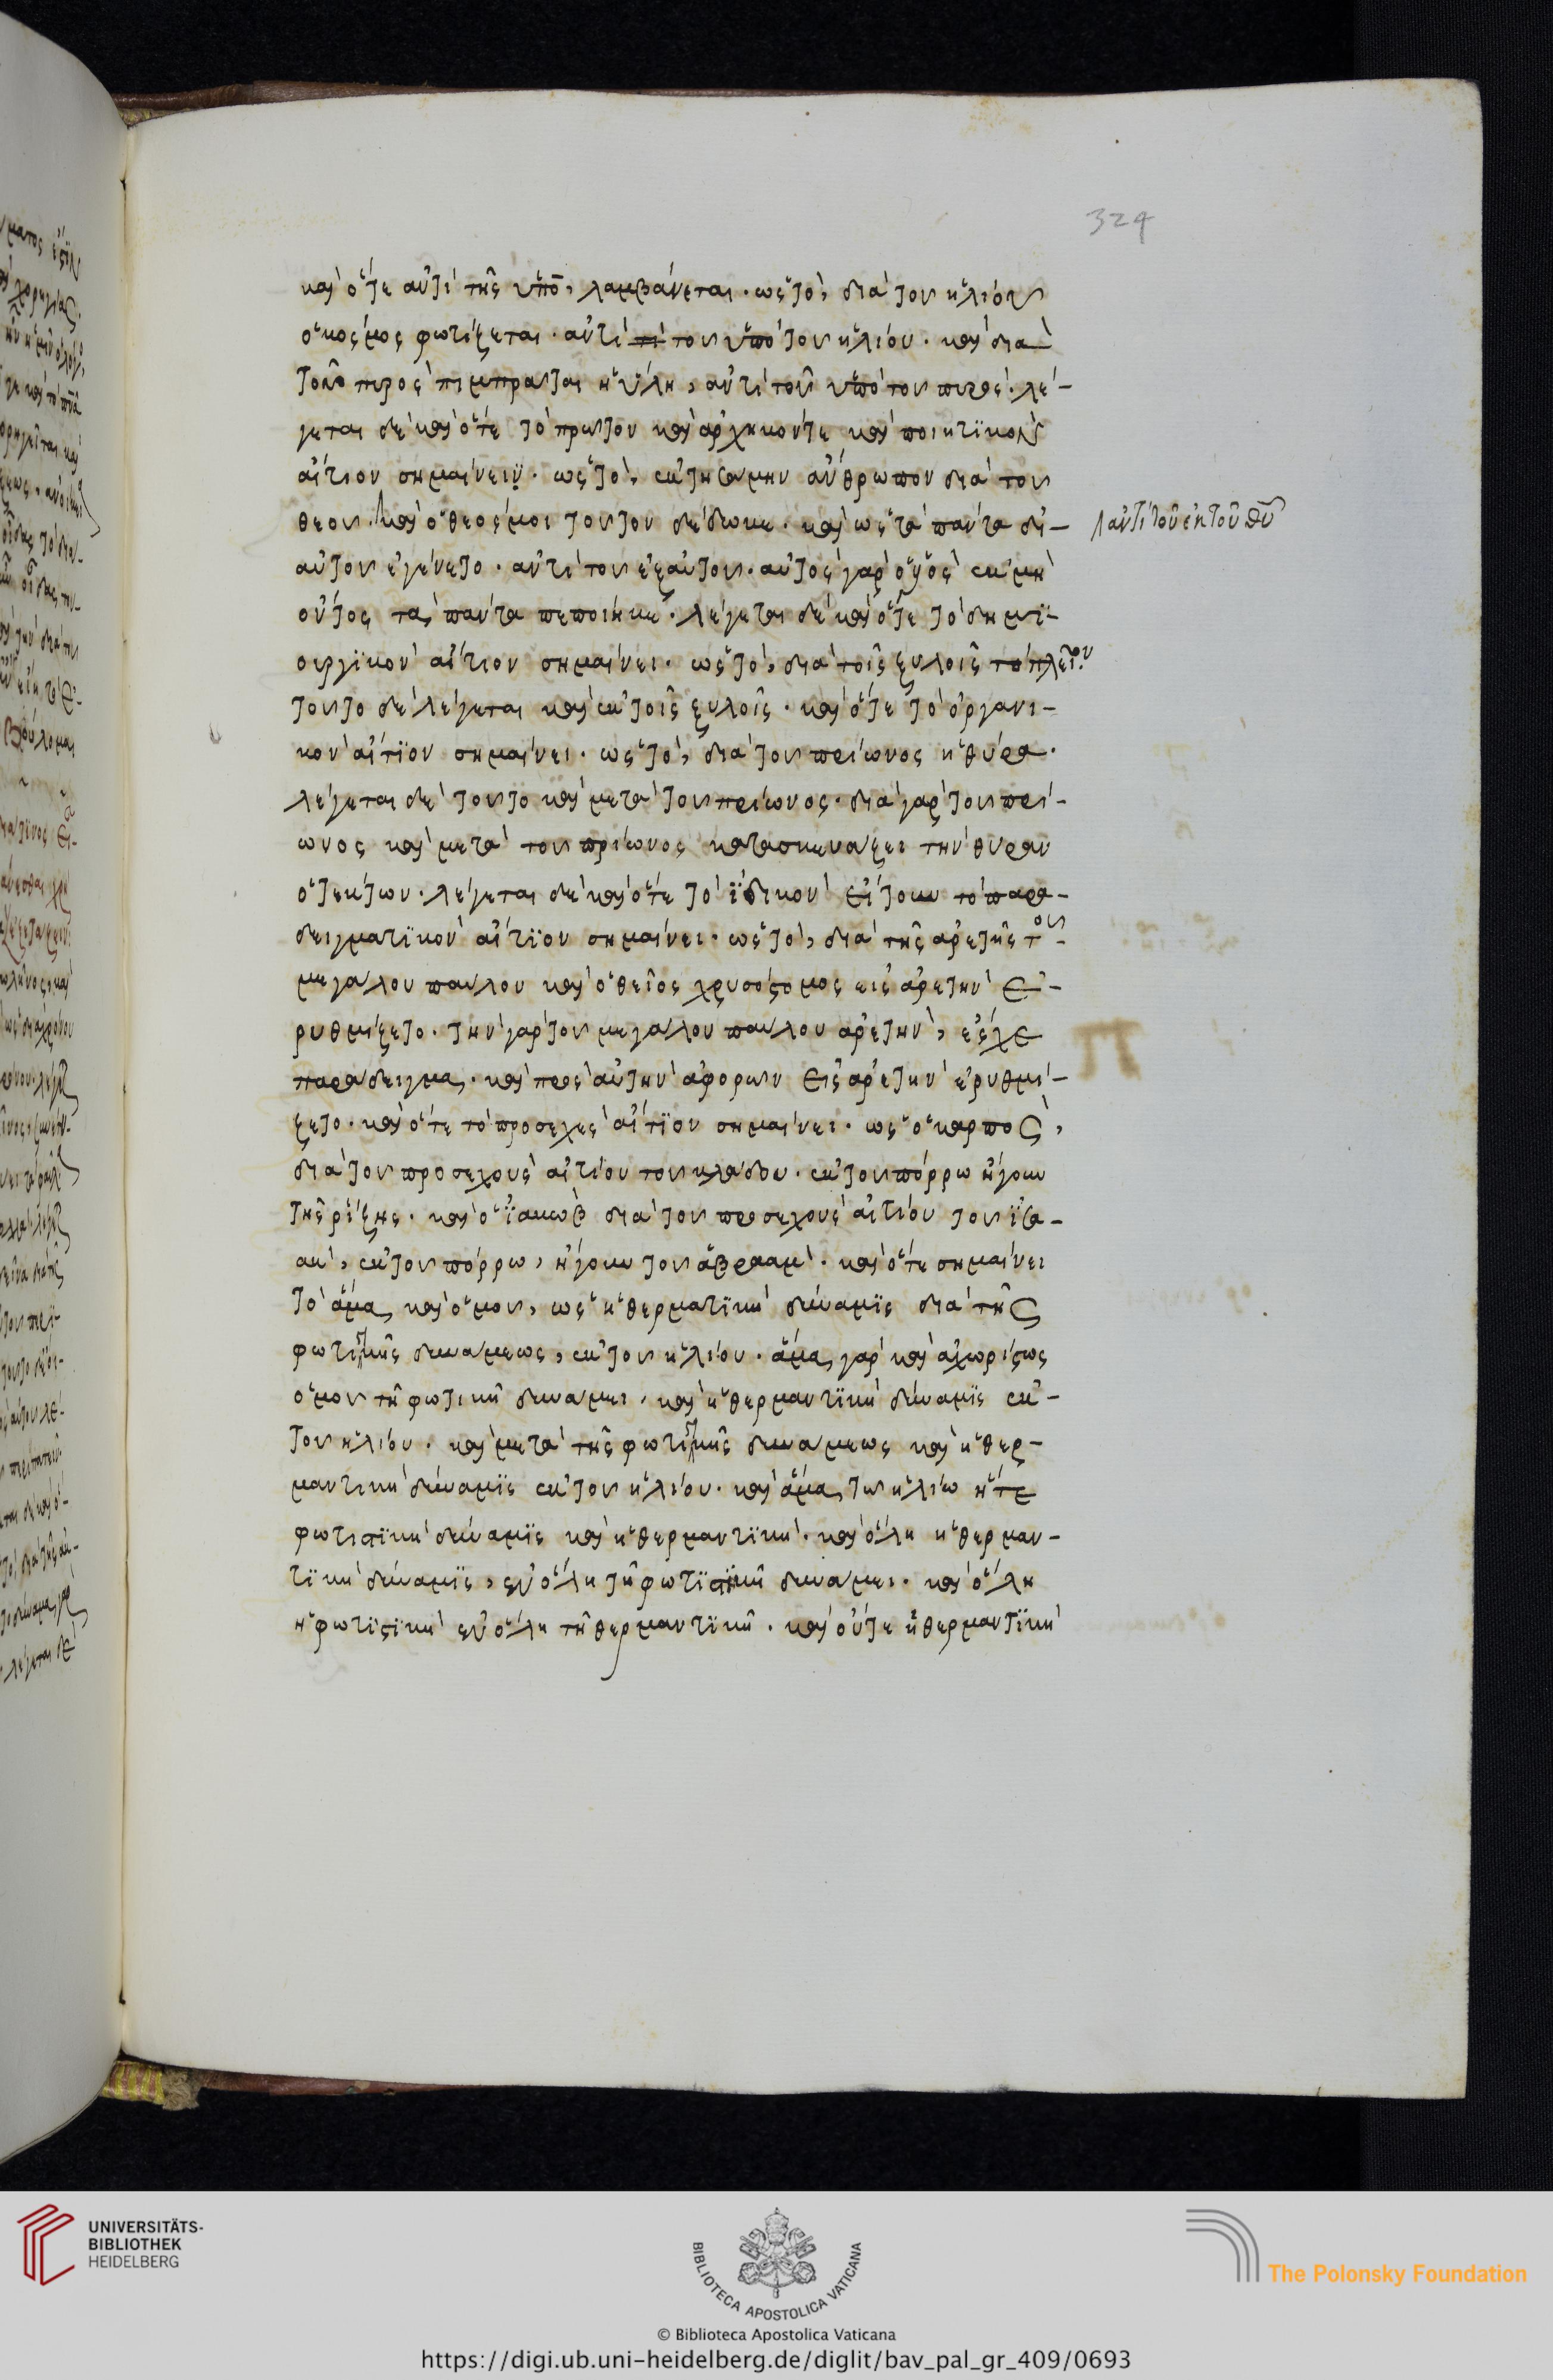 324
καὶ ὅτε ἀντὶ τῆς ὑπὸ, λαμβάνεται. ὡς τὸ, διὰ τοῦ ἡλίου
ὁ κόσμος φωτίζεται. ἀντὶ τοῦ ὑπὸ τοῦ ἡλίου. καὶ διὰ
τοῦ πυρὸς πίμπραται ἡ ὕλη, ἀντὶ τοῦ ὑπὸ τοῦ πυρός. λέ-
γεται δὲ καὶ ὅτε τὸ πρῶτον καὶ ἀρχηκόν τε καὶ ποιητικὸν
αἴτιον σημαίνει. ὡς τὸ, ἐκτησάμην ἄνθρωπον διὰ τοῦ
θεοῦ. καὶ ὁ θεός μοι τοῦτον δέδωκε. καὶ ὡς τὰ πάντα δι-
ἀντὶ τοῦ ἐκ τοῦ θυ
αὐτοῦ ἐγένετο. ἀντὶ τοῦ ἐξ αὐτοῦ. αὐτὸς γὰρ ὁ υἱὸς ἐκ μὴ
ὄντος τὰ πάντα πεποίηκε. λέγεται δὲ καὶ ὅτε τὸ δημϊ-
ουργϊκὸν αἴτιον σημαίνει. ὡς τὸ, διὰ τοῖς ξύλοις τὸ πλεῖον.
τοῦτο δὲ λέγεται καὶ ἐκ τοῖς ξύλοις. καὶ ὅτε τὸ ὀργανι-
κὸν αἴτϊον σημαίνει. ὡς τὸ, διὰ τοῦ πρίωνος ἡ θύρα.
λέγεται δὲ τοῦτο καὶ μετὰ τοῦ πρίωνος. διὰ γὰρ τοῦ πρί-
ωνος καὶ μετὰ τοῦ πρίωνος κατασκευάζει τὴν θύραν
ὁ τέκτων. λέγεται δὲ καὶ ὅτε τὸ ἰδικὸν εἴτουν τὸ παρα-
δειγματϊκὸν αἴτϊον σημαίνει. ὡς τὸ, διὰ τῆς ἀρετῆς τοῦ
μεγάλου παύλου καὶ ὁ θεῖος χρυσόστομος εἰς ἀρετὴν ἐ-
ρυθμίζετο. τὴν γὰρ τοῦ μεγάλου παύλου ἀρετὴν, εἶχε
παράδειγμα. καὶ πρὸς αὐτὴν ἀφορῶν εἰς ἀρετὴν ἐρυθμί-
ζετο. καὶ ὅτε τὸ προσεχὲς αἴτϊον σημαίνει. ὡς ὁ καρπὸς,
διὰ τοῦ προσεχοῦς αἰτίου τοῦ κλάδου. ἐκ τοῦ πόρρω ἤγουν
τῆς ῥίζης. καὶ ὁ ἰακὼβ διὰ τοῦ προσεχοῦς αἰτίου τοῦ ἰσα-
ὰκ, ἐκ τοῦ πόρρω, ἤγουν τοῦ ἀβραάμ. καὶ ὅτε σημαίνει
τὸ ἅμα καὶ ὁμοῦ, ὡς ἡ θερματϊκὴ δύναμϊς διὰ τῆς
φωτιστικῆς δυνάμεως, ἐκ τοῦ ἡλίου. ἅμα γὰρ καὶ ἀχωρίστως
ὁμοῦ τῇ φωτικῇ δυνάμει, καὶ ἡ θερμαντϊκὴ δύναμϊς ἐκ-
τοῦ ἡλίου. καὶ μετὰ τῆς φωτιστικῆς δυνάμεως καὶ ἡ θερ-
μαντικὴ δύναμϊς ἐκ τοῦ ἡλίου. καὶ ἅμα τῷ ἡλίῳ ἥτε
φωτιστϊκὴ δύναμϊς καὶ ἡ θερμαντϊκὴ. καὶ ὅλη ἡ θερμαν-
τϊκὴ δύναμϊς, ἐν ὅλη τῇ φωτϊστικῇ δυνάμει. καὶ ὅλη
ἡ φωτϊστϊκὴ ἐν ὅλη τῇ θερμαντϊκῇ. καὶ οὔτε ἡ θερμαντϊκὴ
UNIVERSITÄTS-
BIBLIOTHEK
HEIDELBERG
BIBLIOTECA APOSTOLICA VATICANA
The Polonsky Foundation
© Biblioteca Apostolica Vaticana
https://digi.ub.uni-heidelberg.de/diglit/bav_pal_gr_409/0693